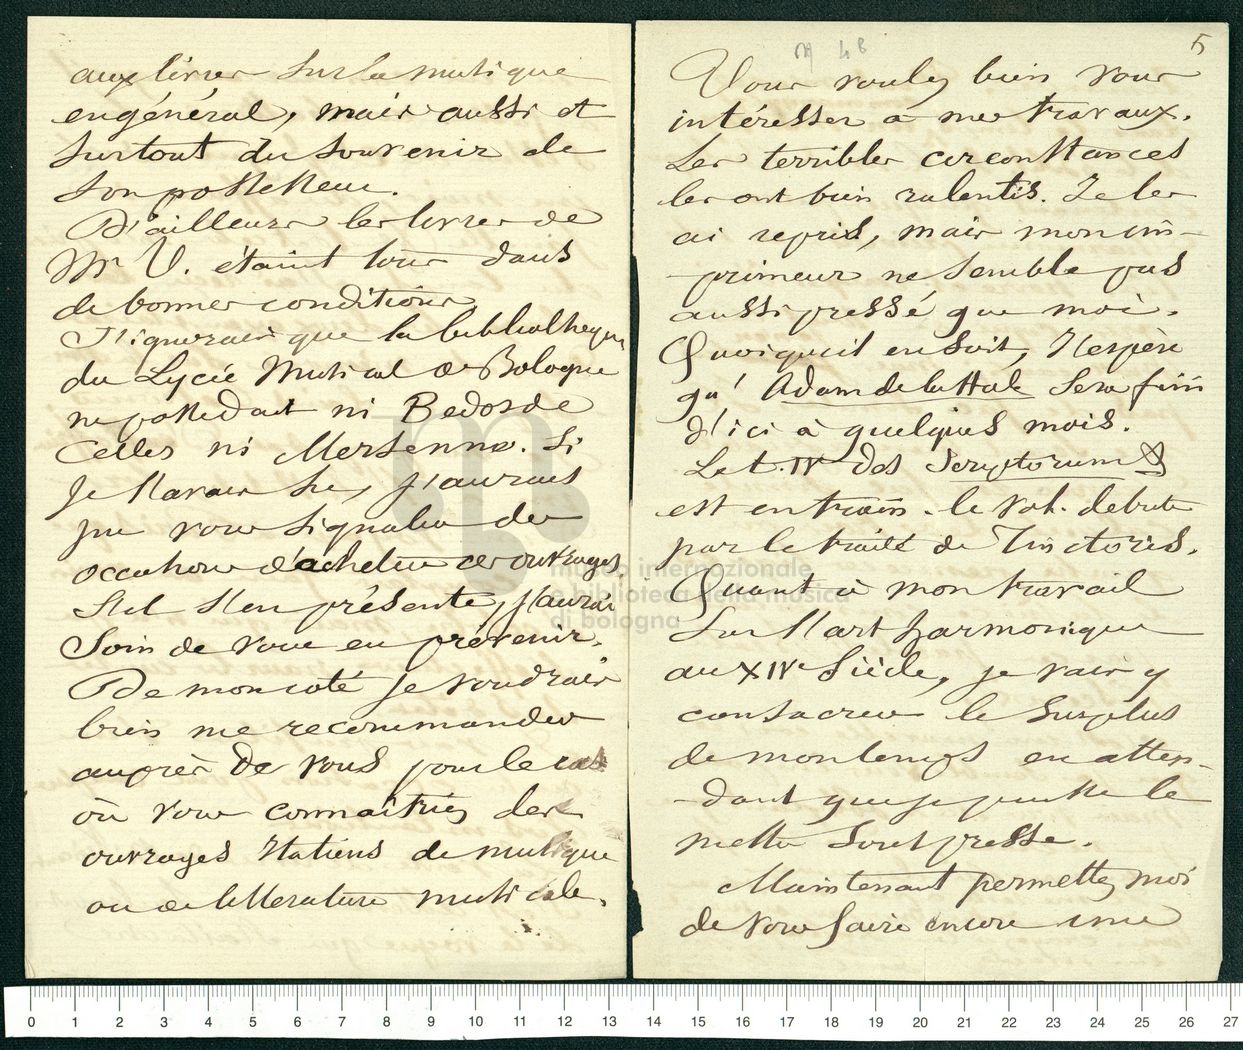 aux livres sur la musique
en général, mais aussi et
surtout du souvenir de
son possesseur.
D'ailleurs les livres de
Mr V. étaint tous dans
de bonnes conditions.
J'ignorais que la bibliotheque
du Lycée Musical de Bologne
ne possedait ni Bedos de
Celles ni Mersenne. Si
je l'avais su, j'aurais
pu vous signaler des
occasions d'acheter ces ouvrages.
S'il s'en présente, j'aurai
soin de vous en prévenir.
De mon coté je voudrais
bien me recommander
auprès de vous pour le cas
où vous connaîtriez des
ouvrages italiens de musique
ou de litterature musicale.
5
Vous voulez bien vous
intéresser à mes travaux.
Les terribles circonstances
les ont bien ralentis. Je les
ai repris, mais mon im-
-primeur ne semble pas
aussi pressé que moi.
Quoiqu'il en soit, j'espère
qu'Adam de la Hale sera fini
d'ici à quelques mois.
Le t. IV des Scriptorum
est en train. le vol. debute
par le traité de Tinctoris.
Quant à mon travail
sur l'art harmonique
au XIVe siècle, je vais y
consacrer le surplus
de mon temps en atten-
-dant que je puisse le
mettre sous presse.
Maintenant permettez moi
de vous faire encore une
museo internazionale
e biblioteca della musica
di bologna
0 1 2 3 4 5 6 7 8 9 10 11 12 13 14 15 16 17 18 19 20 21 22 23 24 25 26 27